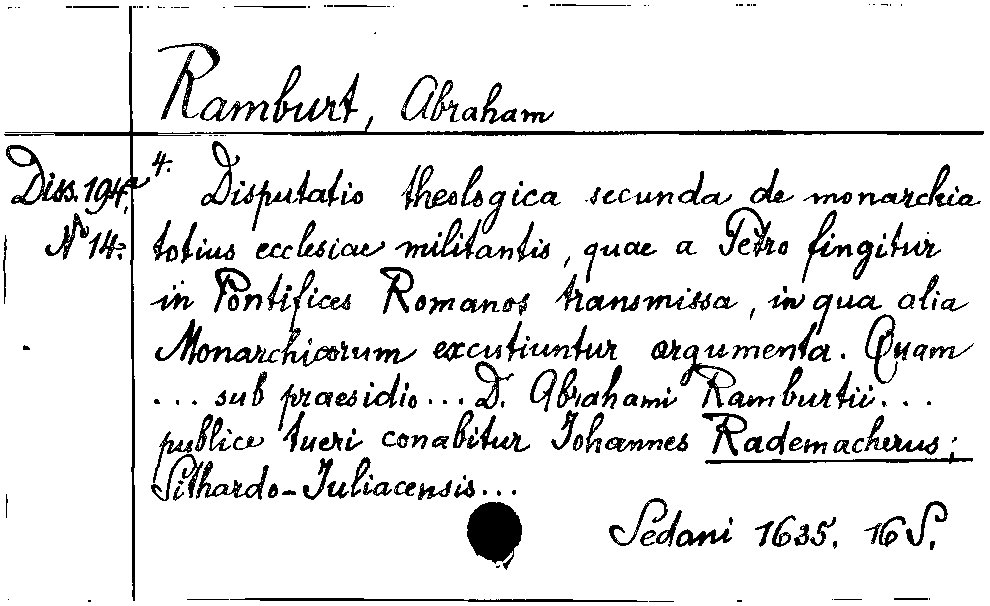 Ramburt, Abraham
Diss. 194,
4.
No 14.
Disputatio theologica secunda de monarchia
totius ecclesiae militantis, quae a Petro fingitur
in Pontifices Romanos transmissa, in qua alia
Monarchicorum excutiuntur argumenta. Quam
... sub praesidio... D. Abrahami Ramburtii...
publice tueri conabitur Johannes Rademacherus;
Sithardo-Juliacensis...
Sedani 1635. 16 S.